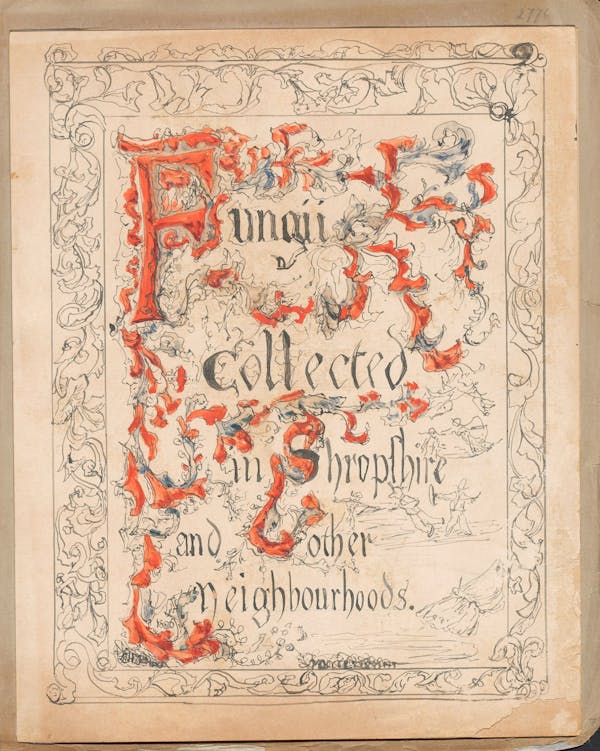 2776
Fungi
Collected
in Shropſhire
and other
Neighbourhoods.
1886